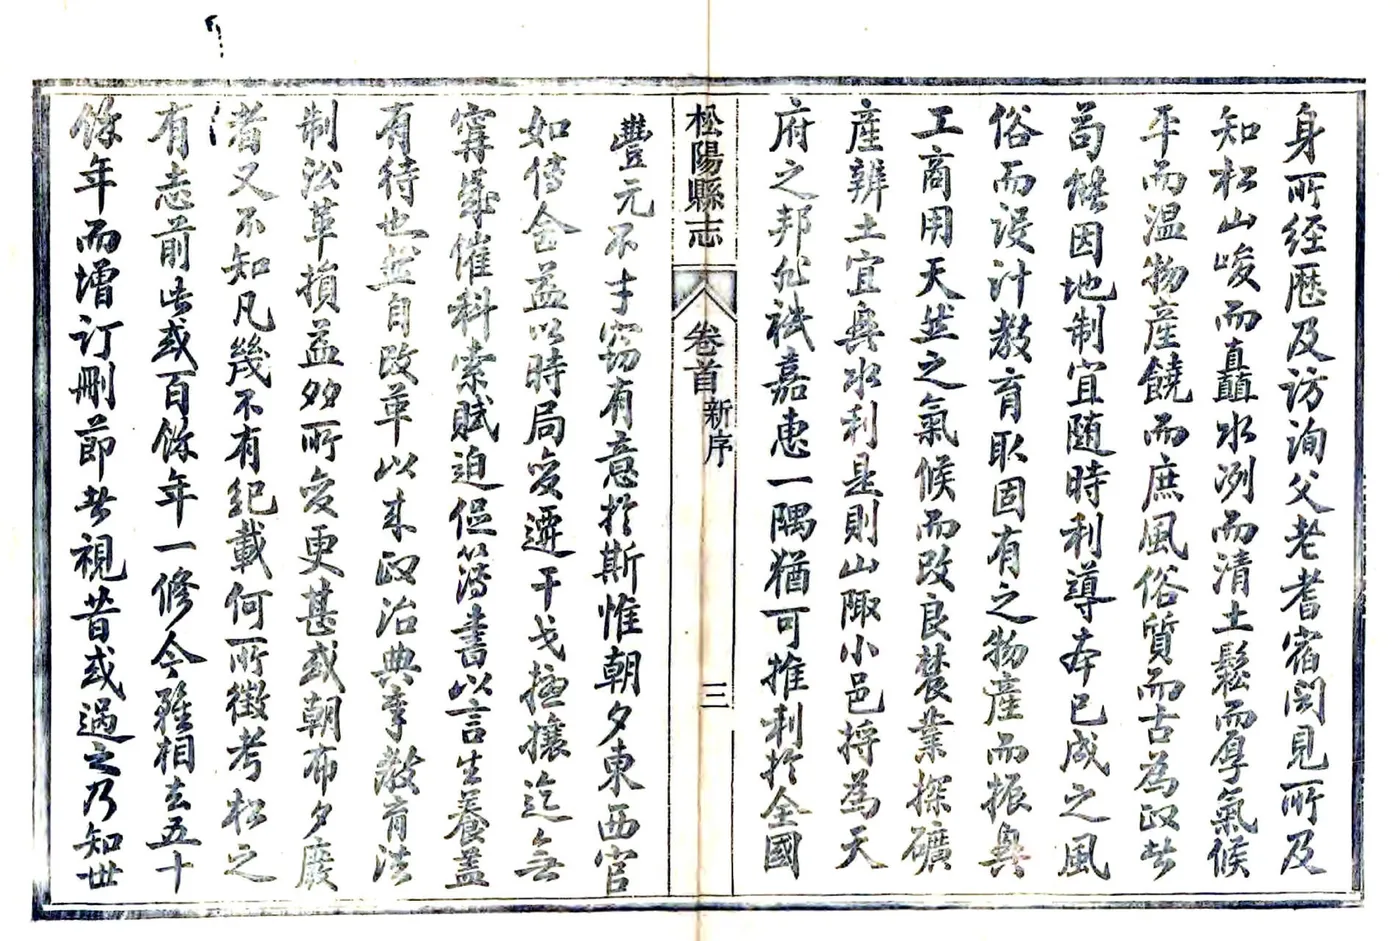 身所経歷及访洵父老耆宿闻見所及
知松山峻而巔水洌而清土鬆而厚氣候
平而温物產饒而庶風俗質而古為政者
苟能因地制宜随時利導本已成之風
俗而設计教育取固有之物產而振興
工商用天然之氣候而改良農業探礦
產辨土宜興水利是則山陬小邑将為天
府之邦非祇嘉惠一隅猶可推利於全國
松陽縣志
卷首
新序
三
豐元不才窃有意於斯惟朝夕東西官
如传舍益以時局变遷干戈搶攘迄無
寧歲催科索賦迫促簿書以言生養盖
有待也然自改革以来政治典章教育法
制沿革損益即所变更甚或朝布夕廢
者又不知凡幾不有纪載何所徵考松之
有志前此或百餘年一修今雖相去五十
餘年而增订删節者視昔或過之乃知世